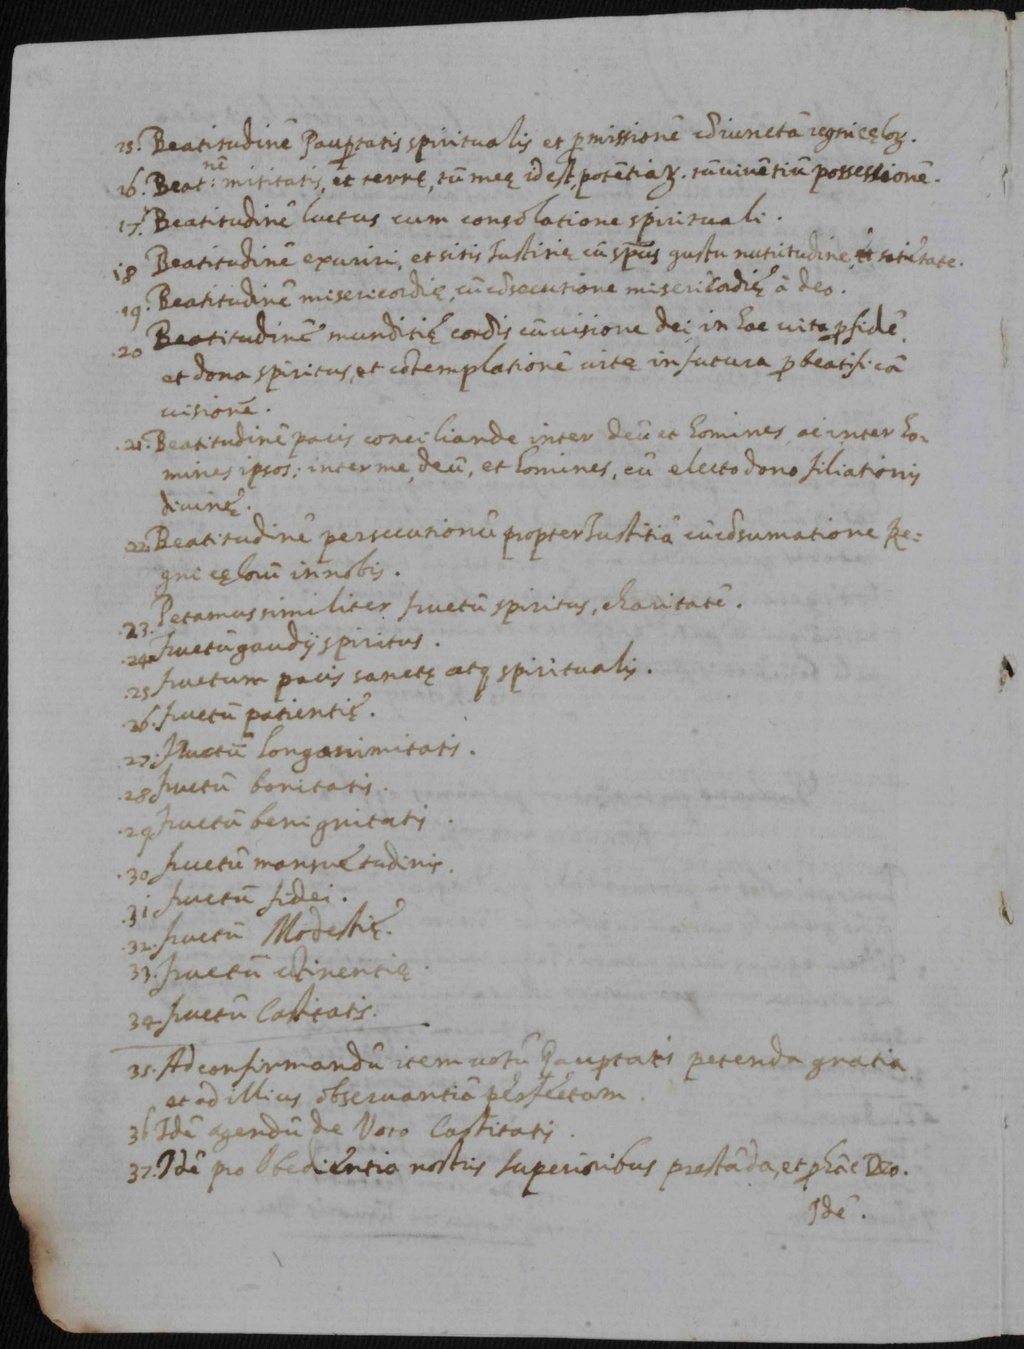 15. Beatitudinē Paup̄tatis spiritualis et p̄missionē cōiunctā regni cęloꝝ.
16. Beat:nē mititatis, et terrę, tū meę id est, potētiaꝝ. tū viuētiū possessionē.
17. Beatitudinē luctus cum consolatione spirituali.
18 Beatitudinē exuriri, et sitis Iustitię cū sp̄us gustu et satietate.
.19. Beatitudinē misericordię, cū cōsecutione misericordię â deo.
.20 Beatitudinē munditię cordis cū visione dei in hac vita p̄ fidē,
et dona spiritus, et cōtemplationē vitę in futura p̄ beatificā
visionē.
.21. Beatitudinē pacis conciliande inter deū et homines, ac inter ho-
mines ipsos; inter me, deū, et homines, cū electo dono filiationis
divinę.
.22. Beatitudinē persecutionū propter Iustitiā cū cōsumatione Re:
gni cęlorū in nobis.
.23. Petamus similiter fructū spiritus, charitatē.
.24. fructū gaudij spiritus.
.25 fructum pacis sanctę atq spiritualis.
.26. fructū patientię.
.27. fructū longanimitatis.
.28 fructū bonitatis.
.29 fructū benignitatis.
.30 fructū mansuetudinis.
.31 fructū fidei.
.32. fructū Modestię.
33. fructū cōtinentię.
34. fructū Castitatis.
35. Ad confirmandū item votū Paup̄tatis petenda gratia
et ad illius observantiā perfectam.
36 Idē agendū de Voto Castitatis.
37. Idē pro Obedientia nostris superioribus prestāda, et p̄ hāc Deo.
Idē.